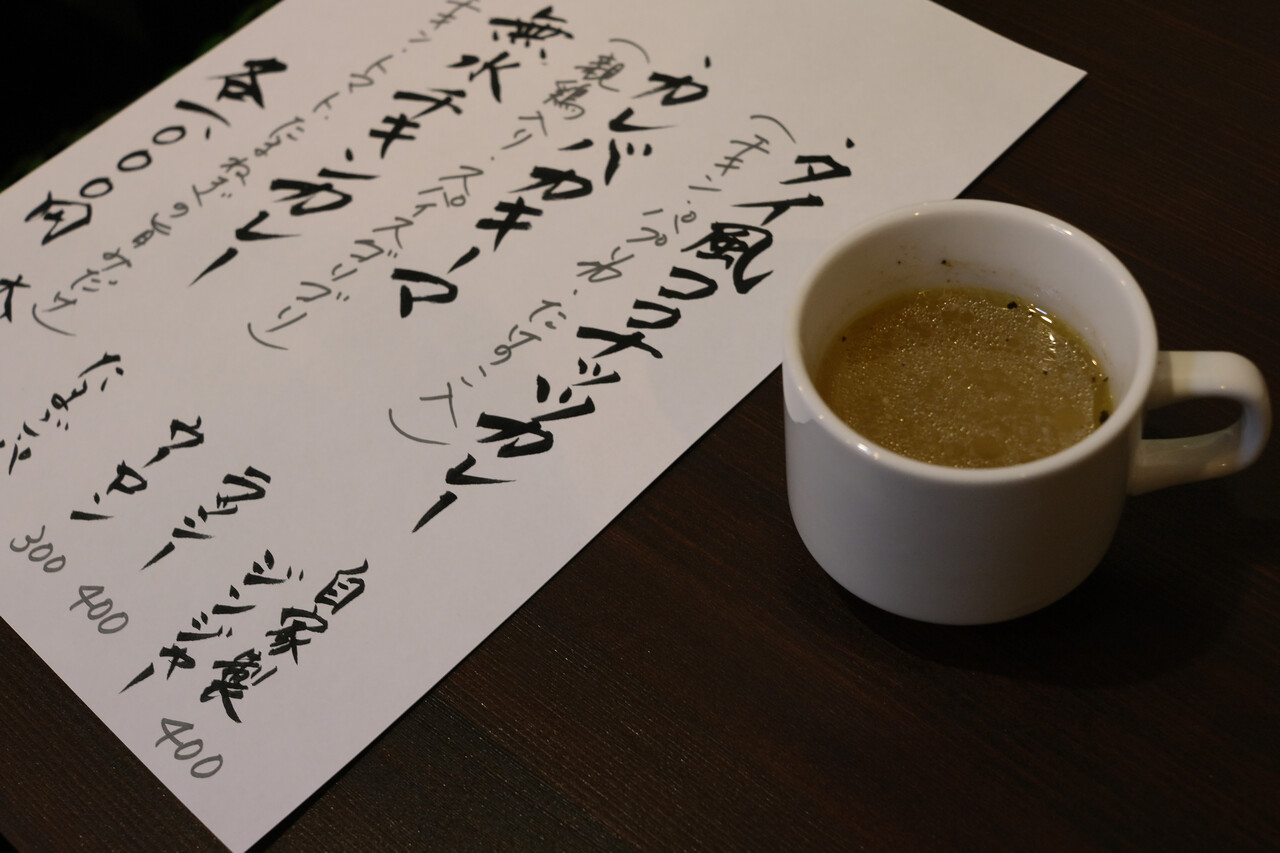 タイ風ココナッツカレー
(チキン・パプリカ・たけのこ入)
カレバカキーマ
(親鶏入り・スパイスゴリゴリ)
無水チキンカレー
チキン・トマト・たまねぎの旨みだけ)
各一、〇〇〇円
自家製
ジンジャー
400
ラッシー
400
ウーロン
300